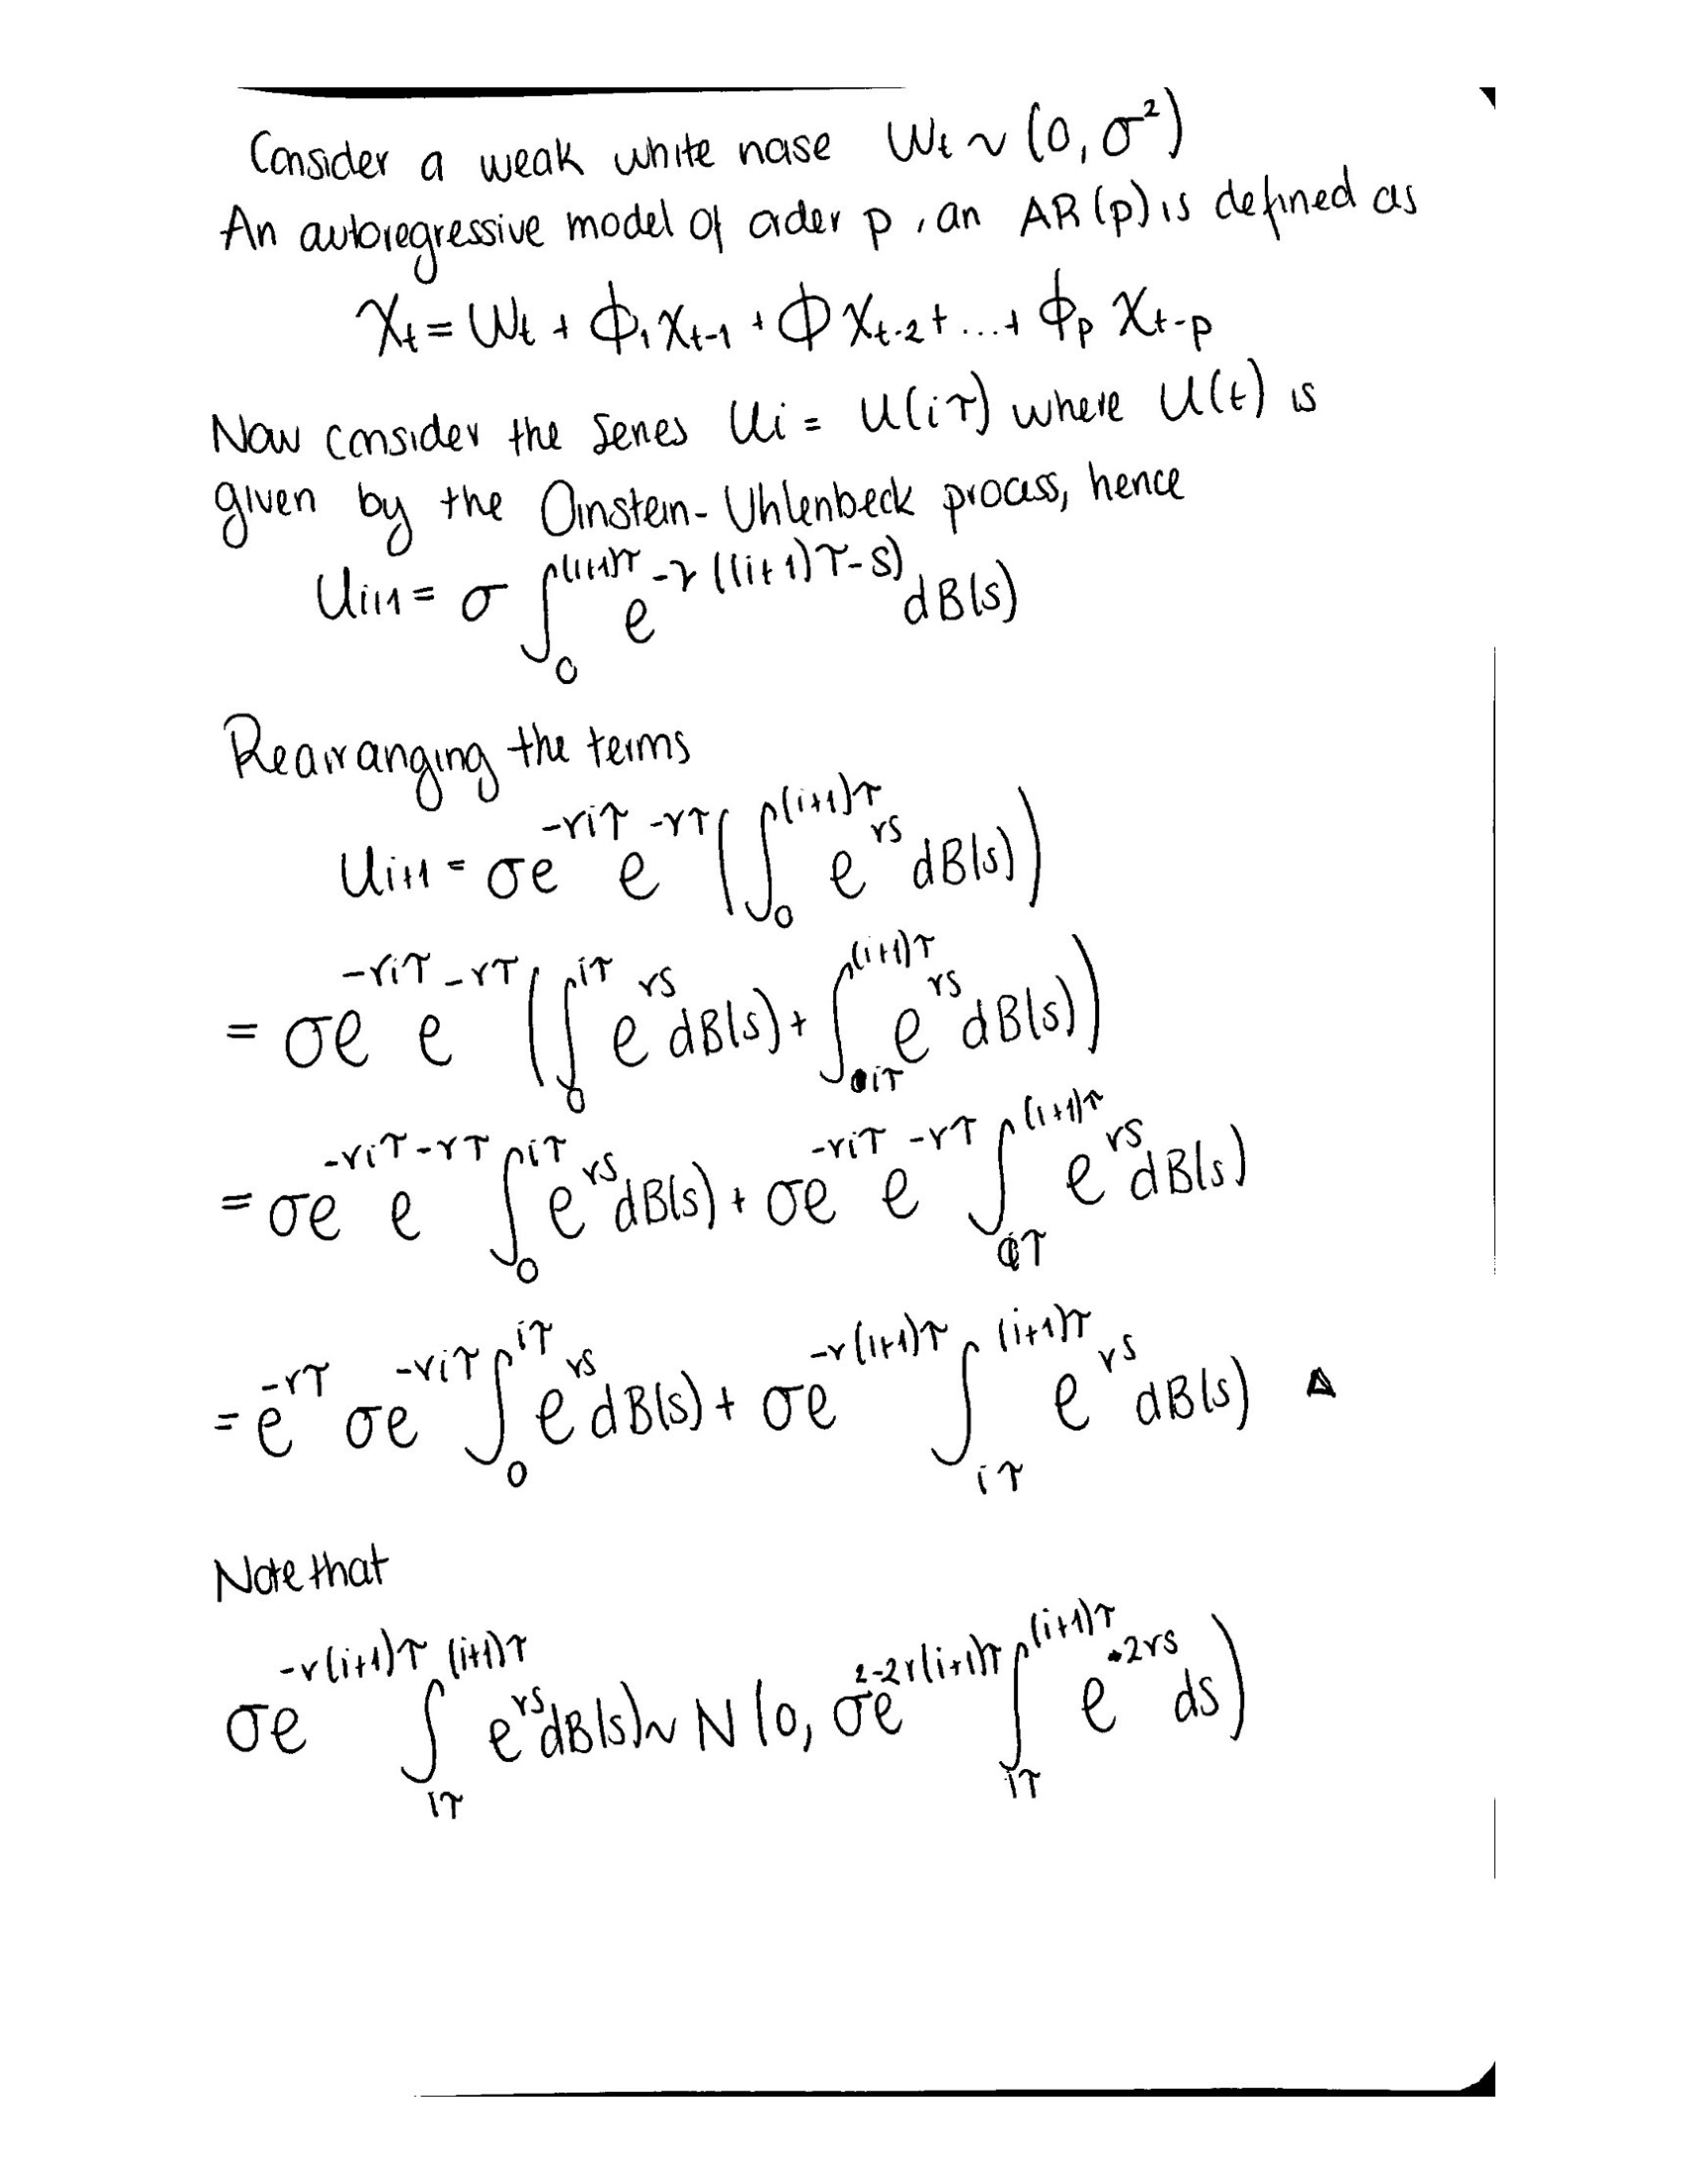 Consider a weak white noise W_t ~ (0, σ²)
An autoregressive model of order p, an AR(p) is defined as
X_t = W_t + ϕ_1 X_{t-1} + ϕ X_{t-2} + ... + ϕ_p X_{t-p}
Now consider the series U_i = U(iτ) where U(t) is
given by the Ornstein-Uhlenbeck process, hence
U_{i+1} = σ ∫_0^{(i+1)τ} e^{-r((i+1)τ-s)} dB(s)
Rearranging the terms
U_{i+1} = σe^{-riτ} e^{-rτ} (∫_0^{(i+1)τ} e^{rs} dB(s))
= σe^{-riτ} e^{-rτ} (∫_0^{iτ} e^{rs} dB(s) + ∫_{iτ}^{(i+1)τ} e^{rs} dB(s))
= σe^{-riτ} e^{-rτ} ∫_0^{iτ} e^{rs} dB(s) + σe^{-riτ} e^{-rτ} ∫_{iτ}^{(i+1)τ} e^{rs} dB(s)
= e^{-rτ} σe^{-riτ} ∫_0^{iτ} e^{rs} dB(s) + σe^{-r(i+1)τ} ∫_{iτ}^{(i+1)τ} e^{rs} dB(s) Δ
Note that
σe^{-r(i+1)τ} ∫_{iτ}^{(i+1)τ} e^{rs} dB(s) ~ N(0, σ² e^{-2r(i+1)τ} ∫_{iτ}^{(i+1)τ} e^{2rs} ds)